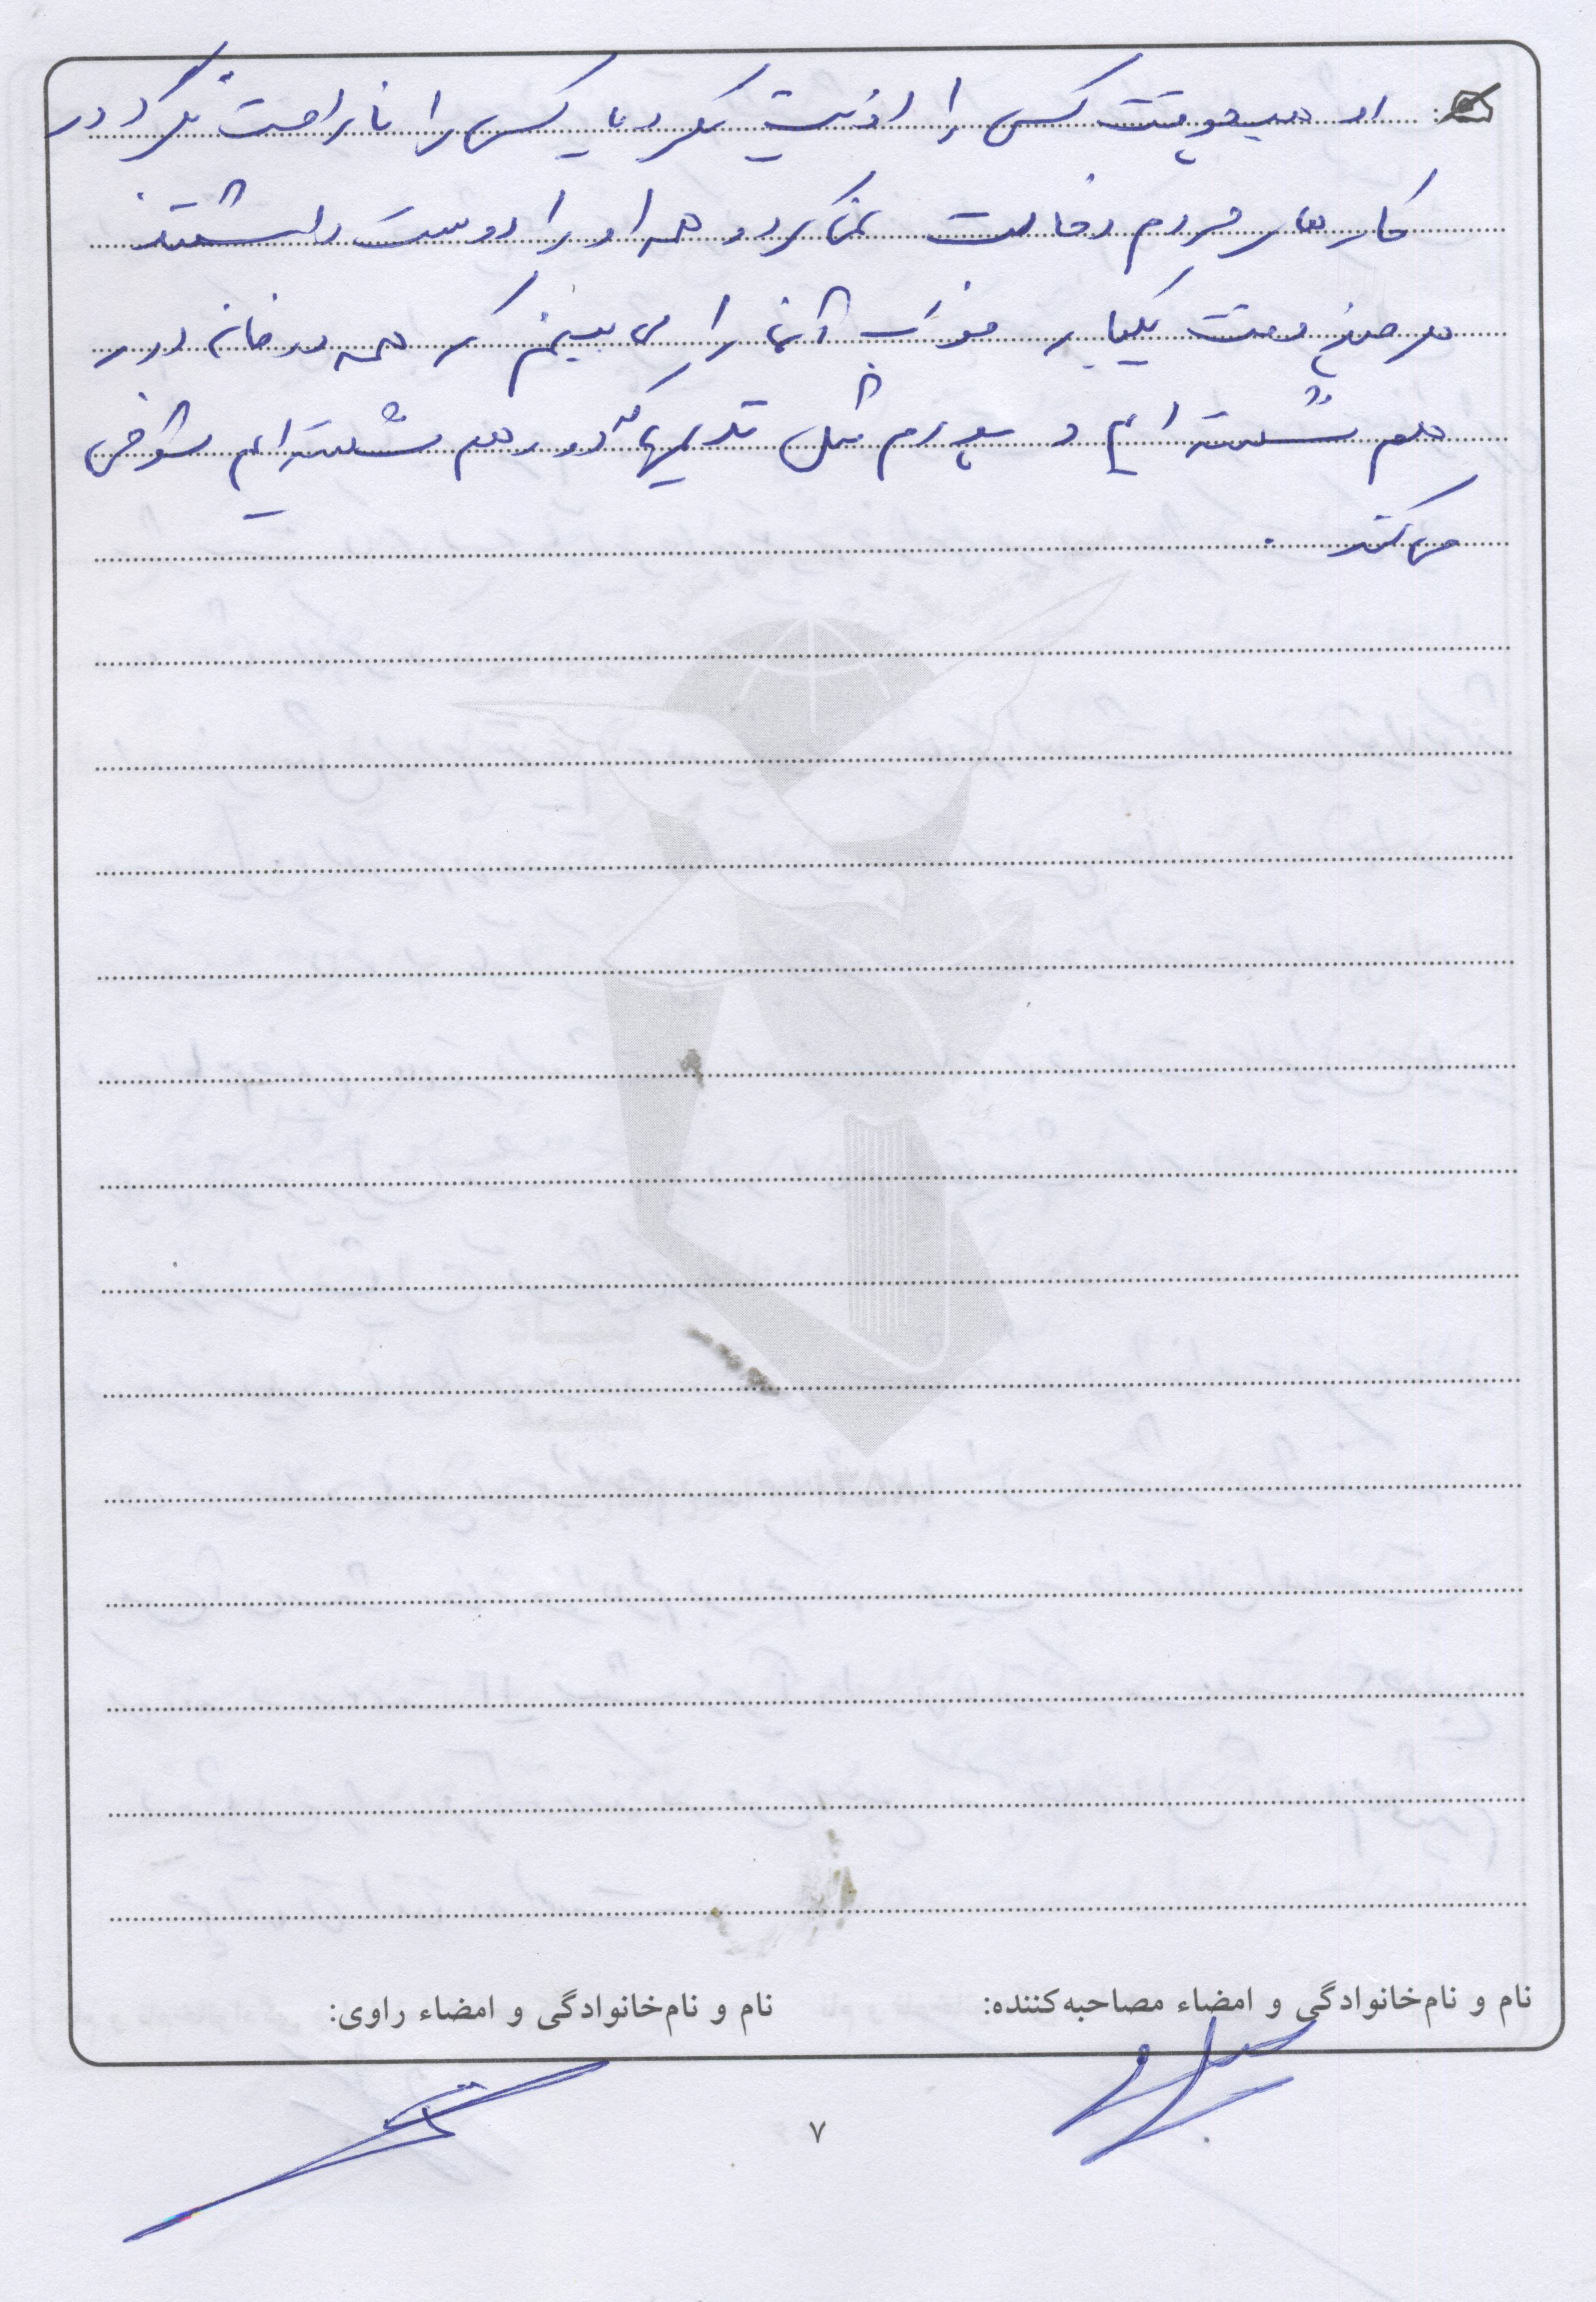 او هیچوقت کسی را اذیت نکرد یا کسی را ناراحت نکرد و در
کارهای مردم دخالت نمی کرد و همه او را دوست داشتند
هر چند وقت یکبار خواب آنها را می بینم که همه در خانه دور
هم نشسته ایم و پدرم مثل قدیمها که دور هم نشسته ایم شوخی
می کند.
نام و نام‌خانوادگی و امضاء مصاحبه‌کننده:
نام و نام‌خانوادگی و امضاء راوی:
۷